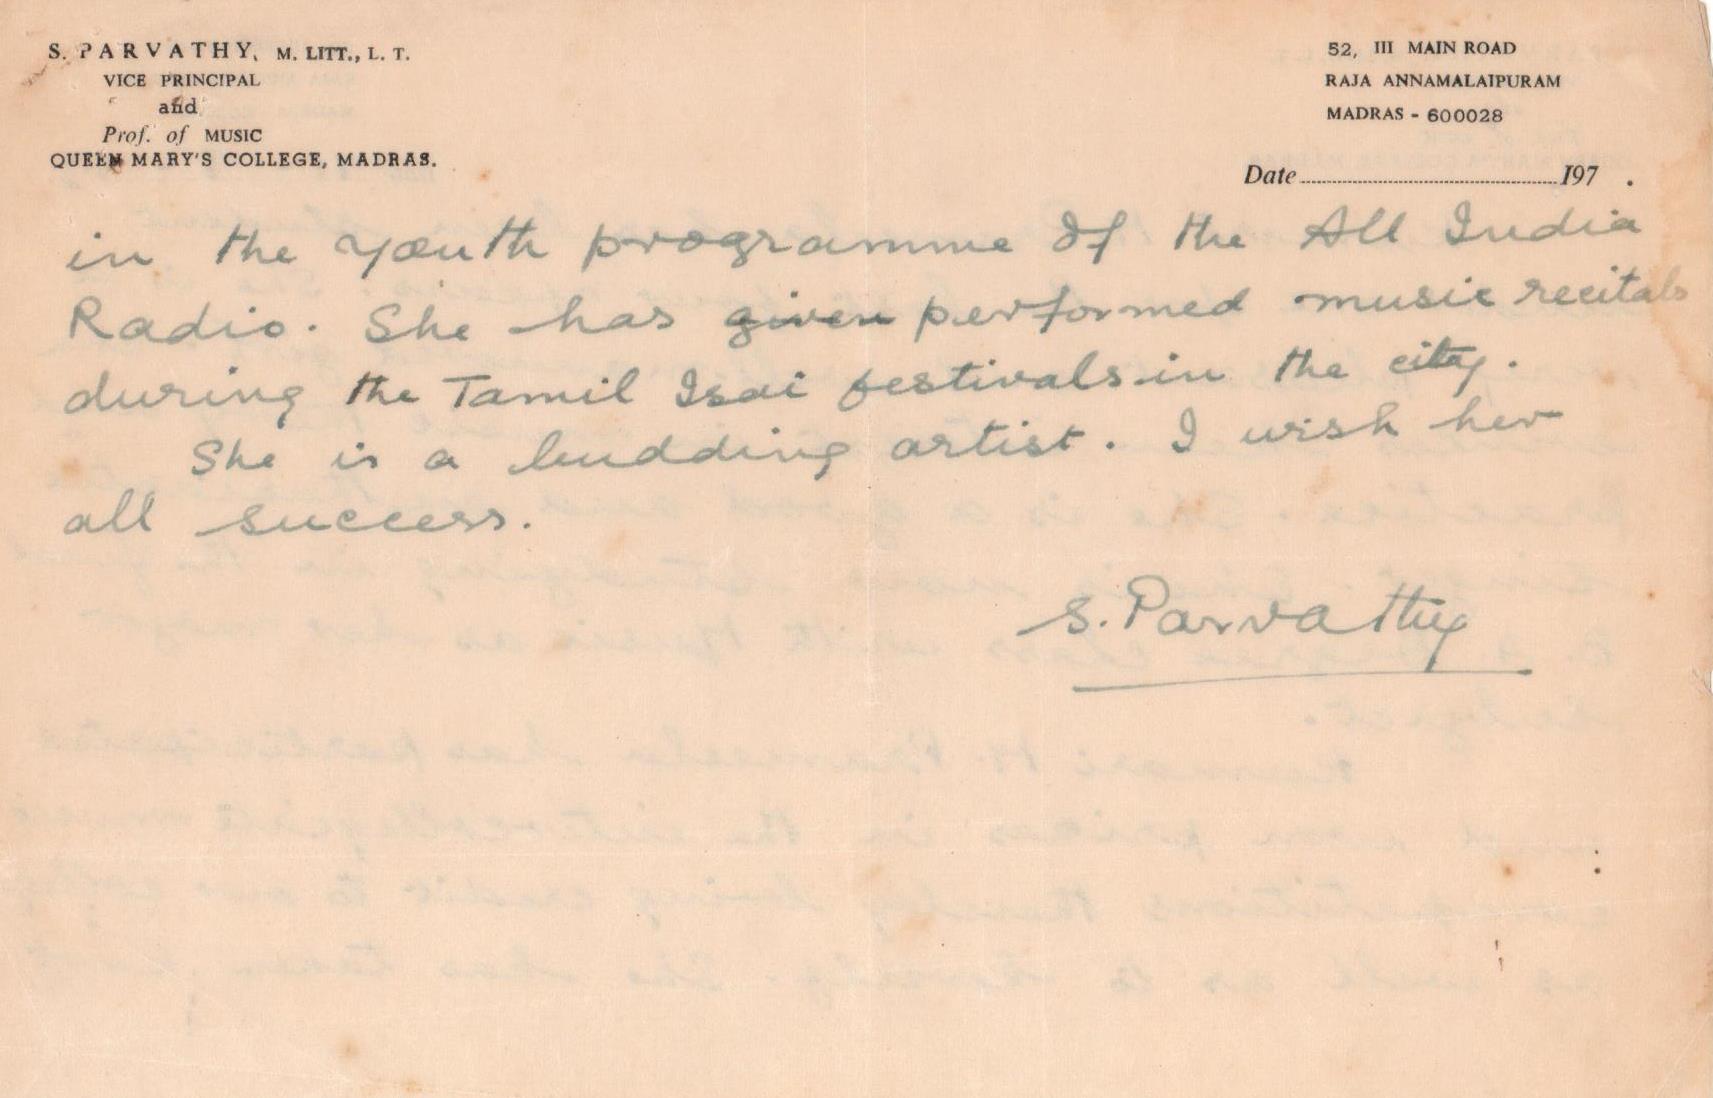 S. PARVATHY, M. LITT., L. T.
VICE PRINCIPAL
and
Prof. of MUSIC
QUEEN MARY'S COLLEGE, MADRAS.
52, III MAIN ROAD
RAJA ANNAMALAIPURAM
MADRAS - 600028
Date..............................197 .
in the Youth programme of the All India
Radio. She has given performed music recitals
during the Tamil Isai festivals in the city.
She is a budding artist. I wish her
all success.
S. Parvathy